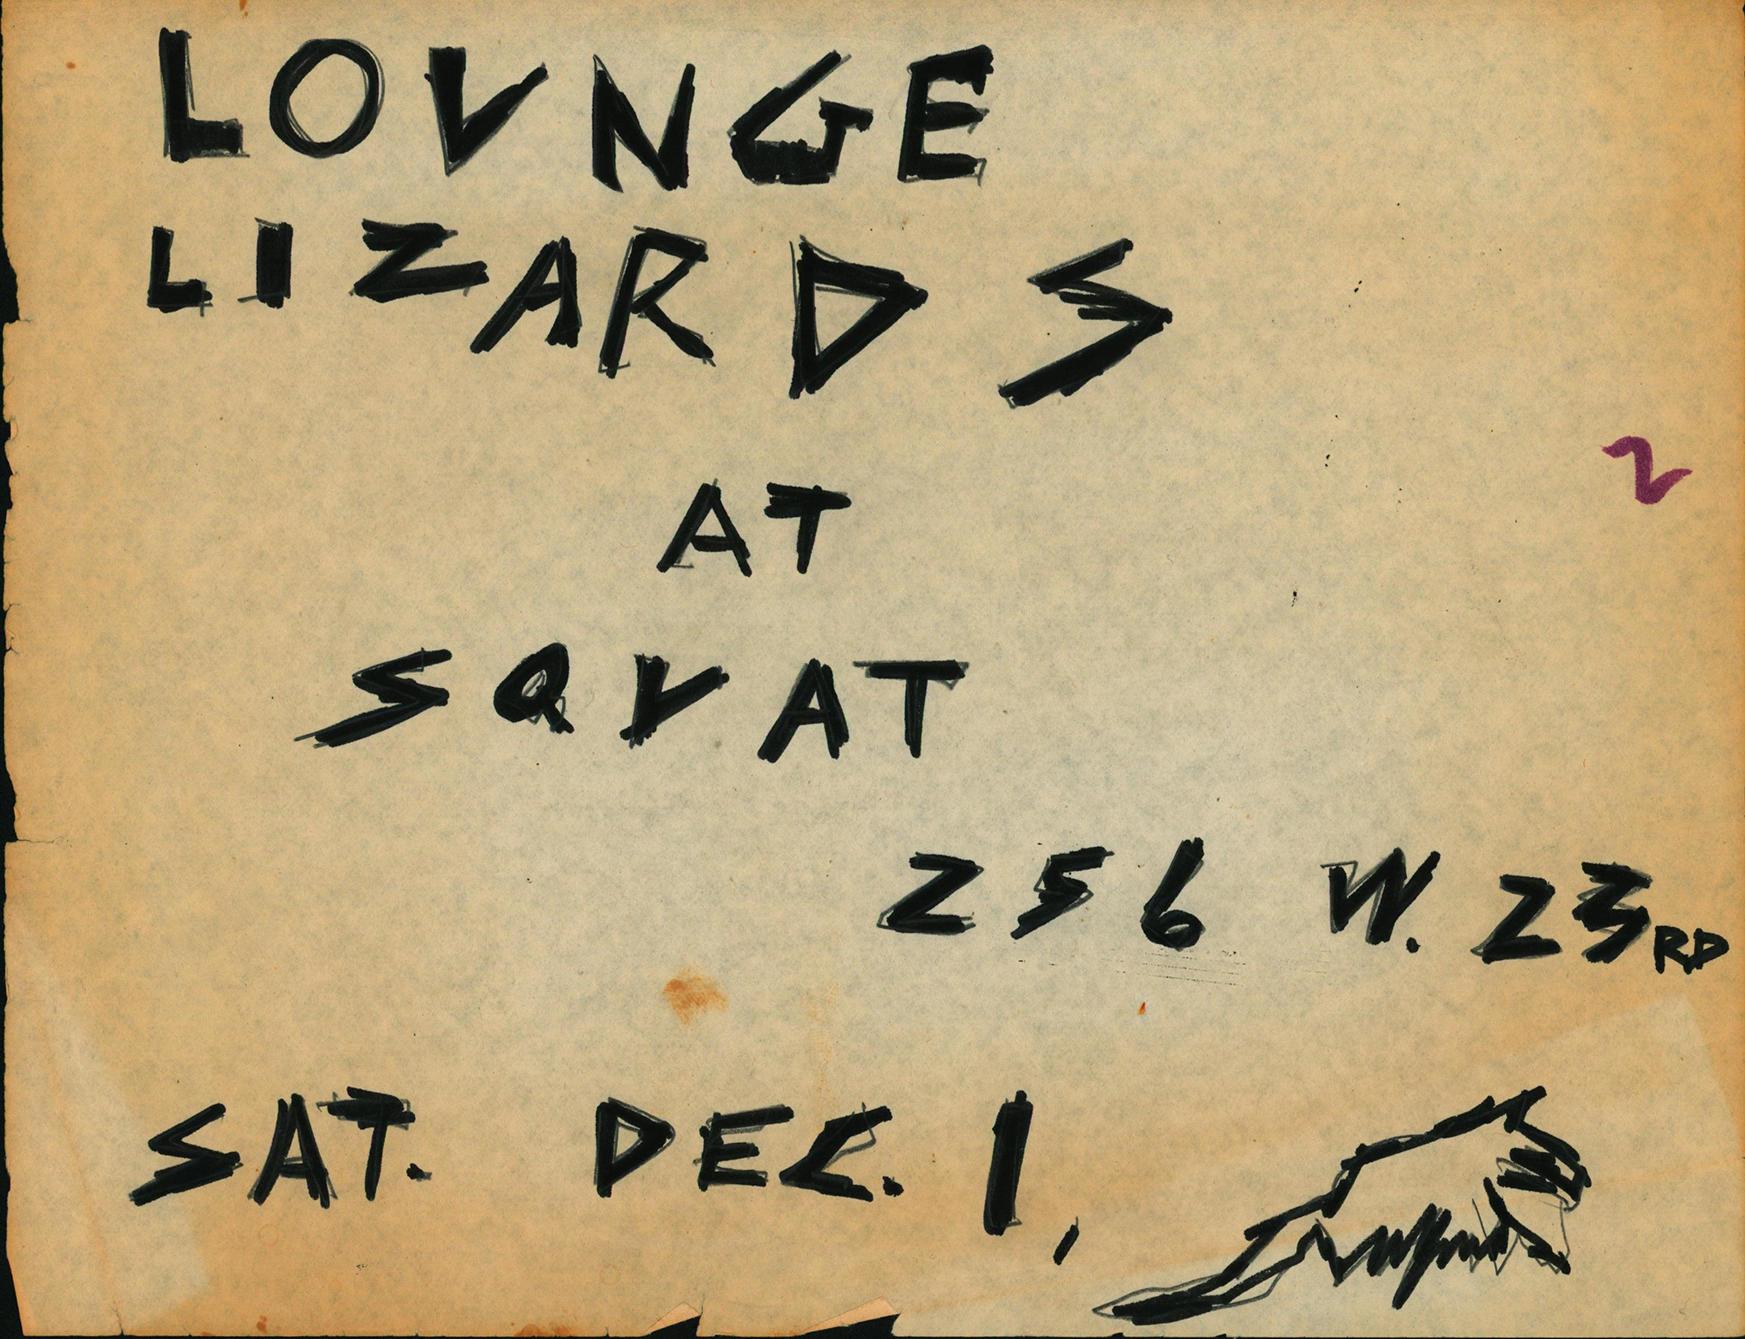 LOUNGE
LIZARDS
AT
2
SQUAT
256 W. 23RD
SAT. DEC. 1,